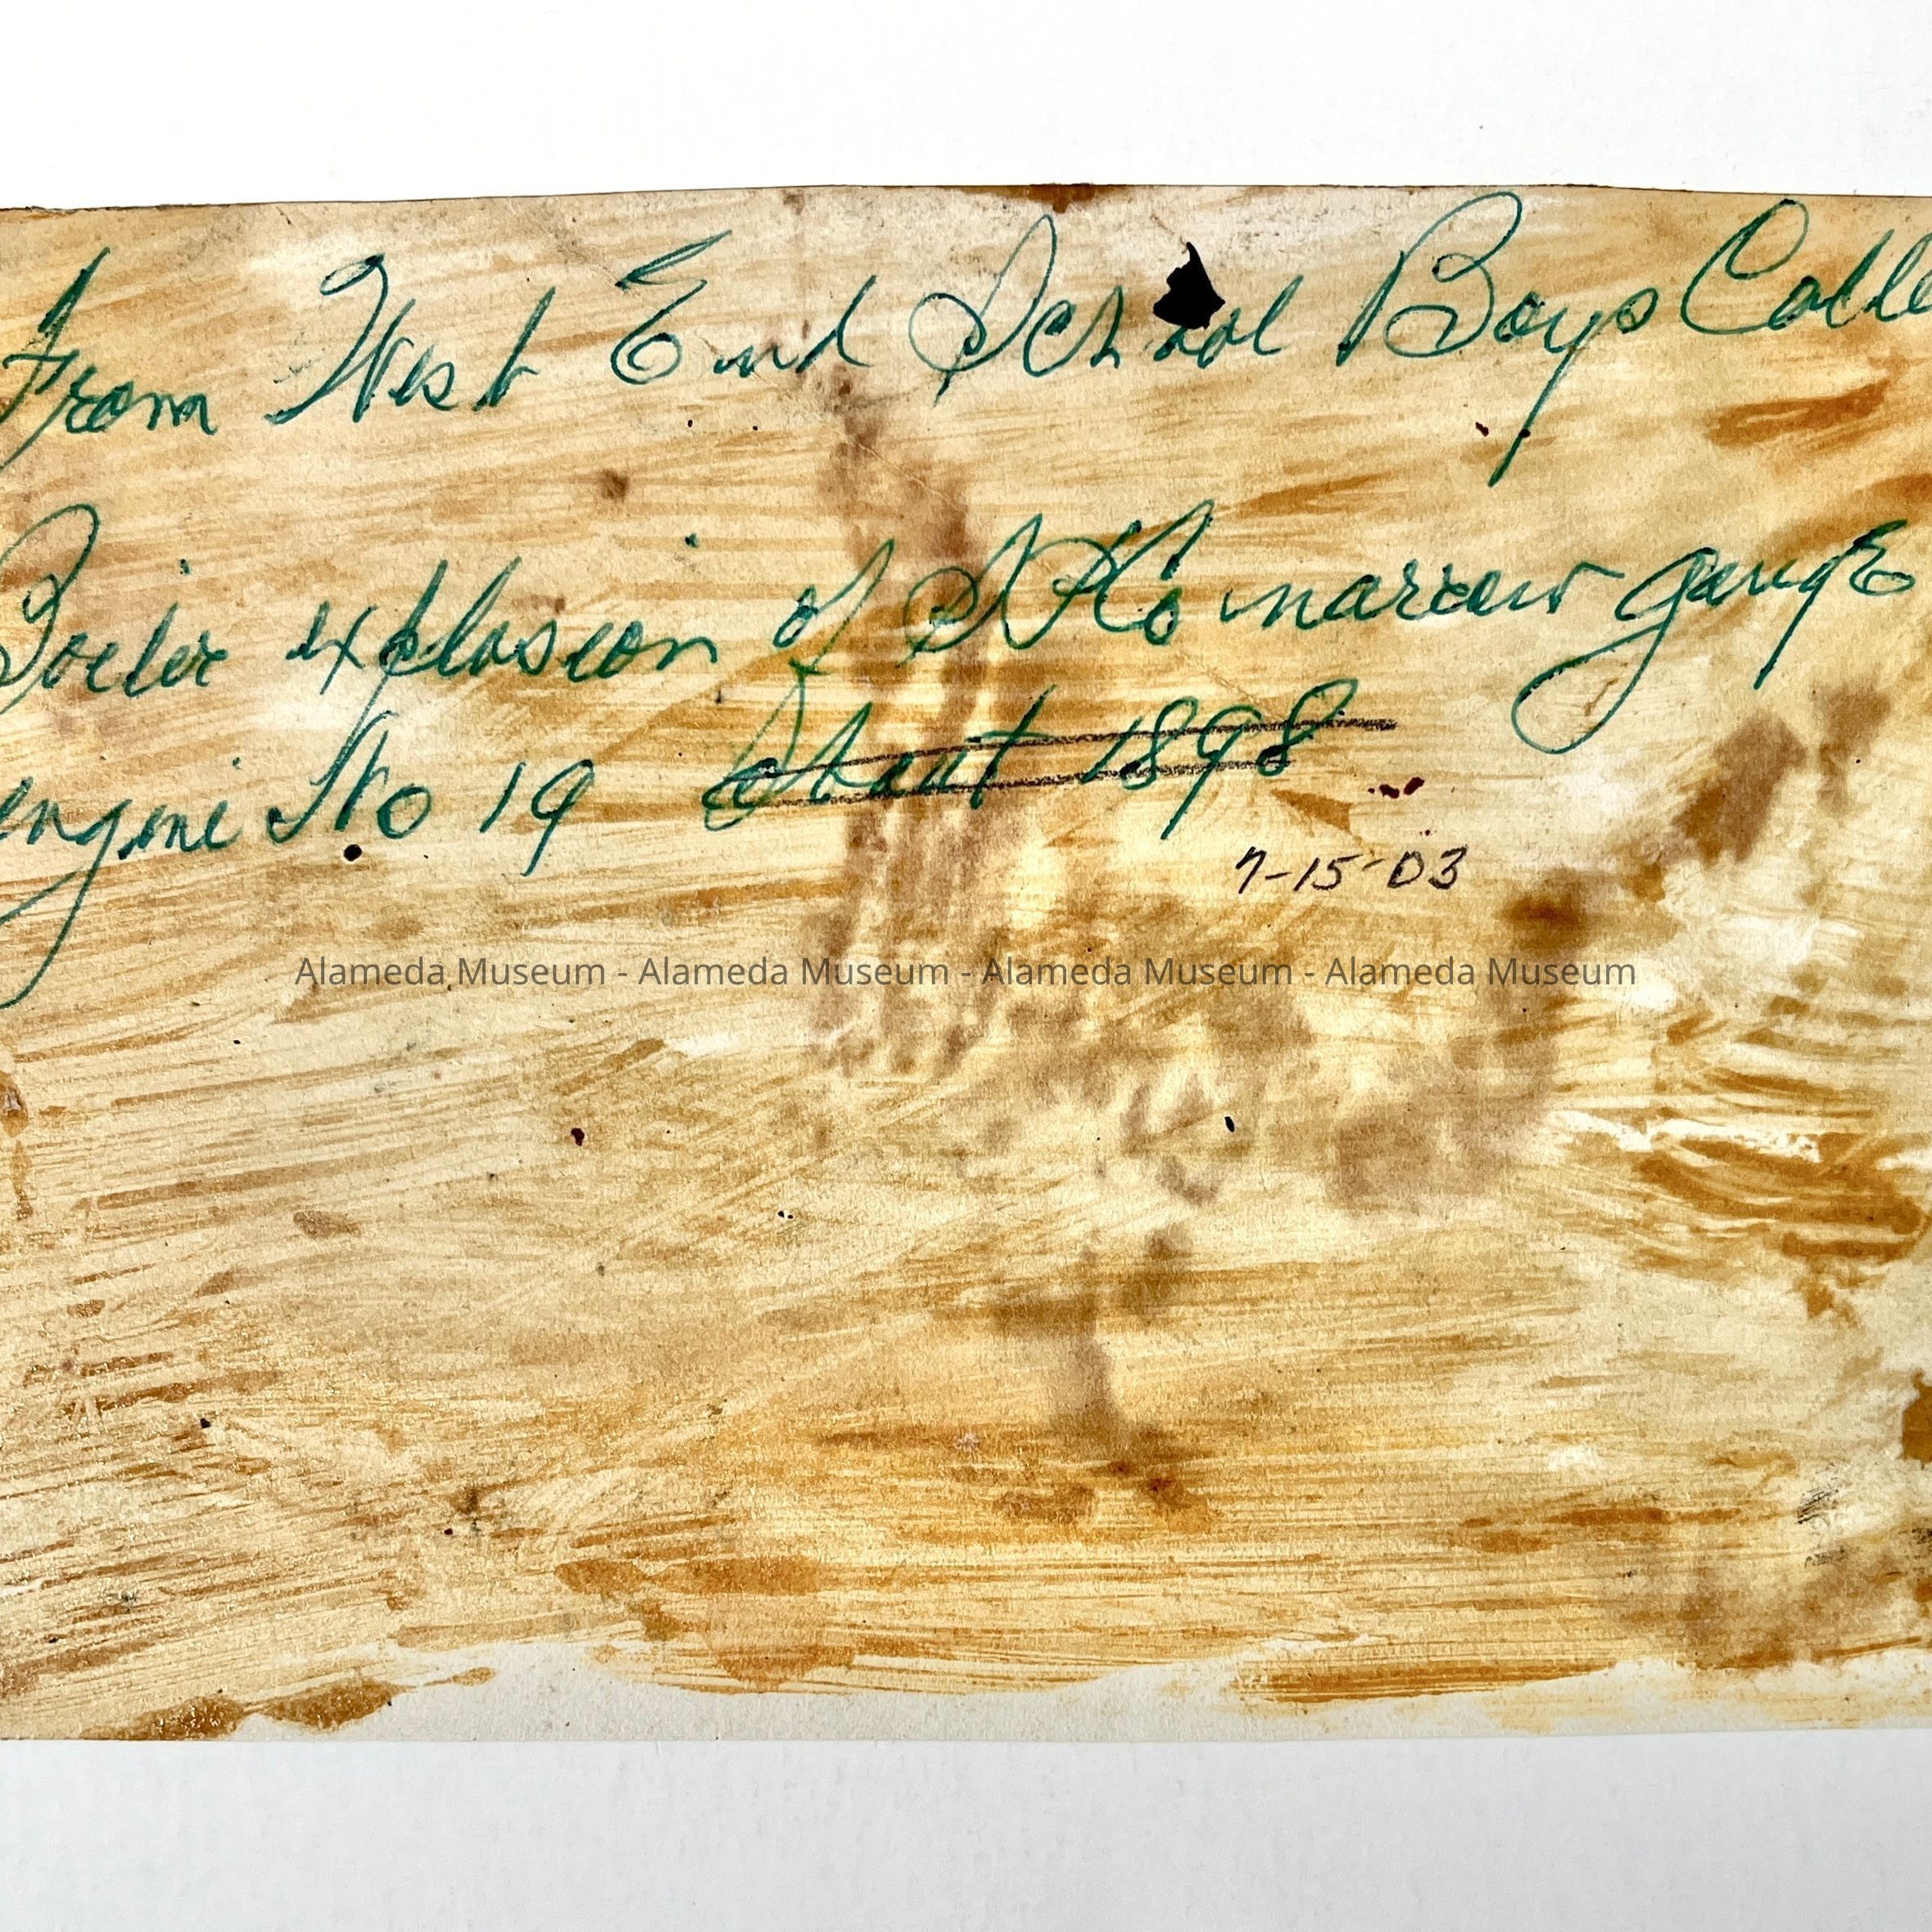 From West End School Boys Colle
Boiler explosion of S P Co narrow gauge
engine No 19 about 1898
7-15-03
Alameda Museum - Alameda Museum - Alameda Museum - Alameda Museum